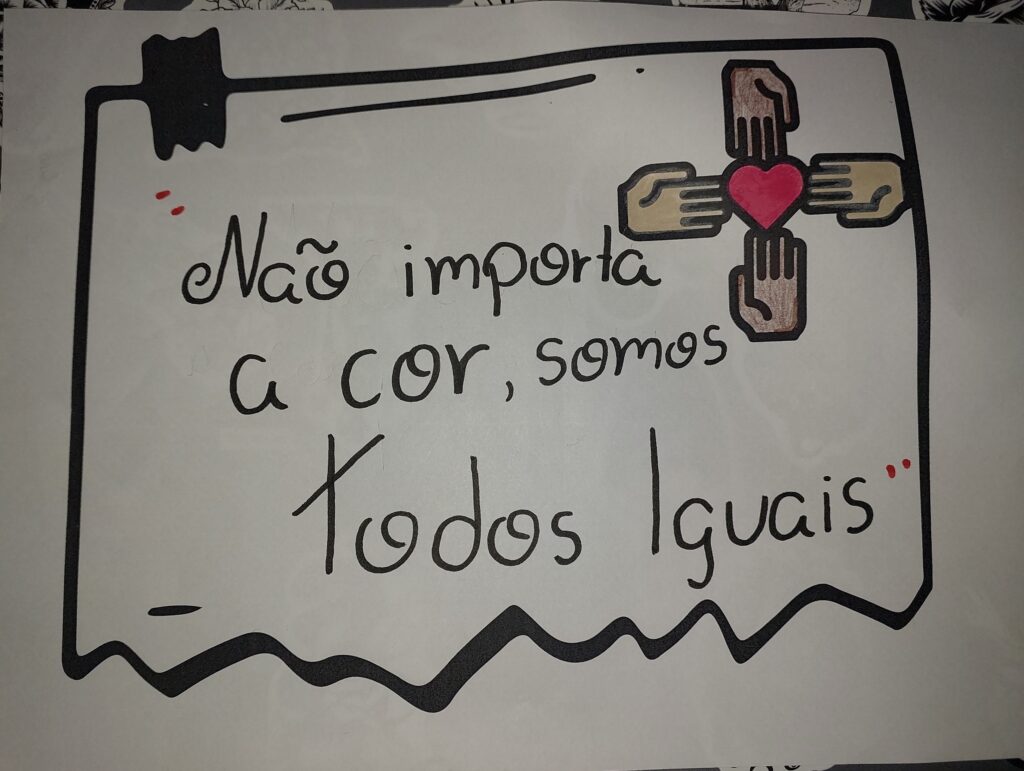 "Não importa
a cor, somos
Todos Iguais"